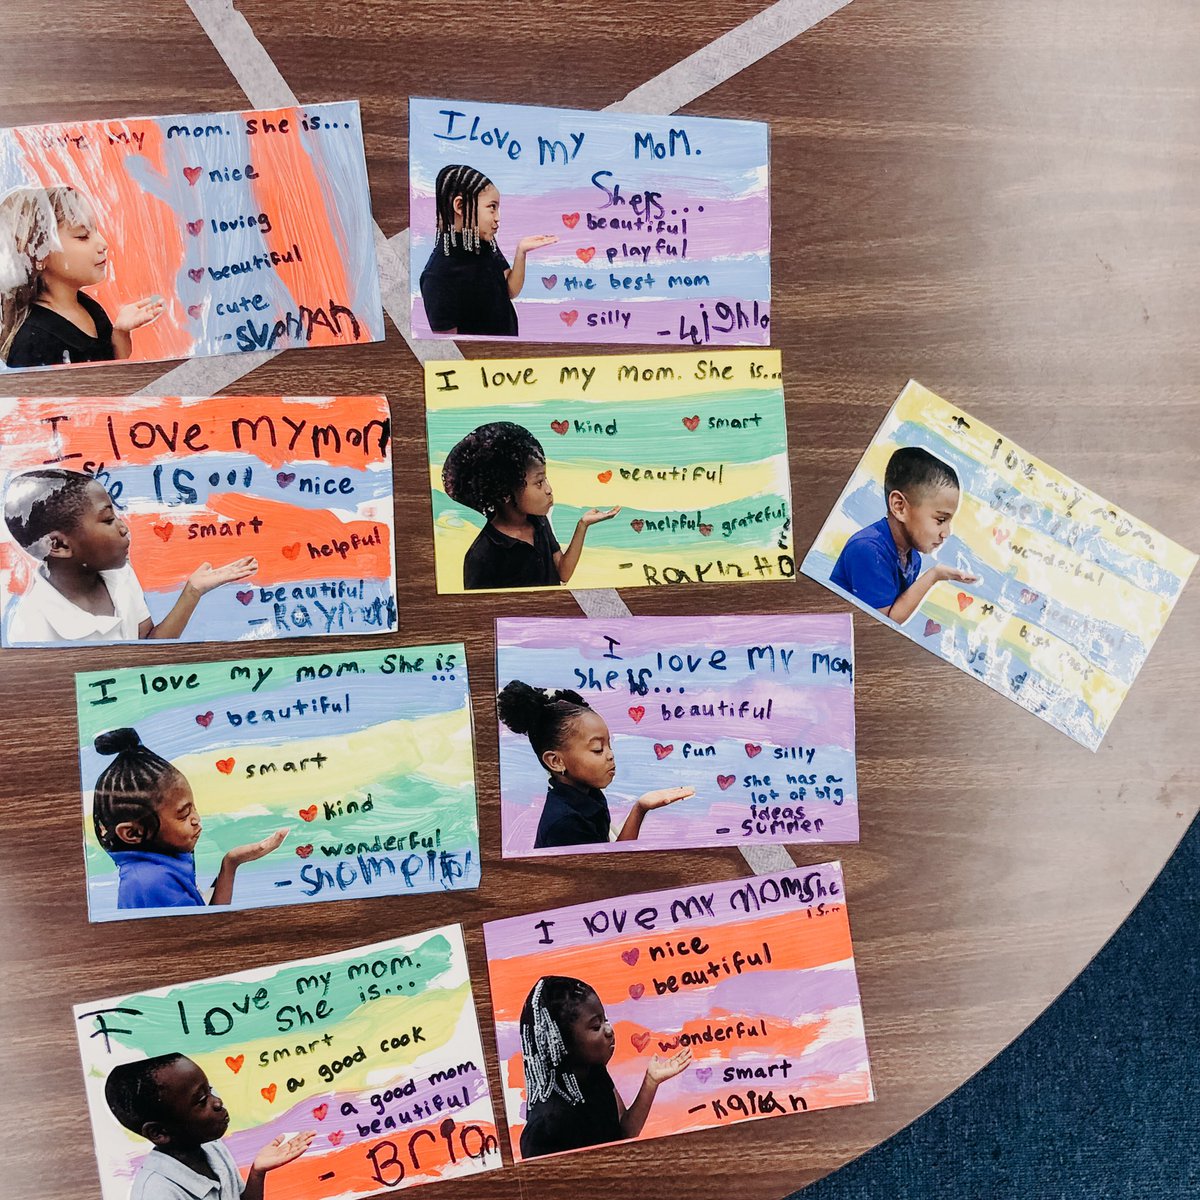 my mom. She is...
nice
loving
beautiful
cute
I love my MoM.
She is...
beautiful
playful
the best mom
silly
I love my mom
she is...
nice
smart
helpful
beautiful
I love my mom. She is...
kind
smart
beautiful
helpful
grateful
I love my mom.
She is
wonderful
beautiful
the best
I love my mom. She is
...
beautiful
smart
kind
wonderful
I love my mom
She is...
beautiful
fun
silly
she has a
lot of big
ideas
- summer
I love my mom.
She is...
smart
a good cook
a good mom
beautiful
- Brian
I love my mom She
is...
nice
beautiful
wonderful
smart